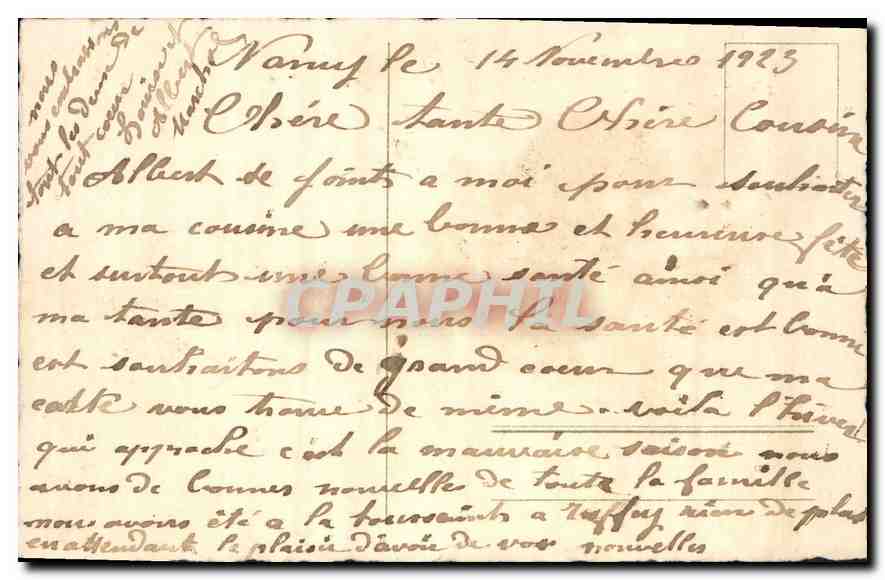 Nancy le 14 Novembre 1923
Chére tante Chére Cousine
Albert se joints a moi pour souhaiter
a ma cousine une bonne et heureuse fête
et surtout une bonne santé ainsi qu'a
ma tante pour nous la santé est bonne
est souhaitons de grand coeur que ma
catte vous trouve de même. voila l'hiver
qui approche c'est la mauvaise saison nous
avons de bonnes nouvelles de toute la famille
nous avons été a la toussaints a Ruffey rien de plus
en attendant le plaisir d'avoir de vos nouvelles
nous
vous embrassons
tout les deux de
tout coeur
Louise et
Albert
Marchal
CPAPHIL